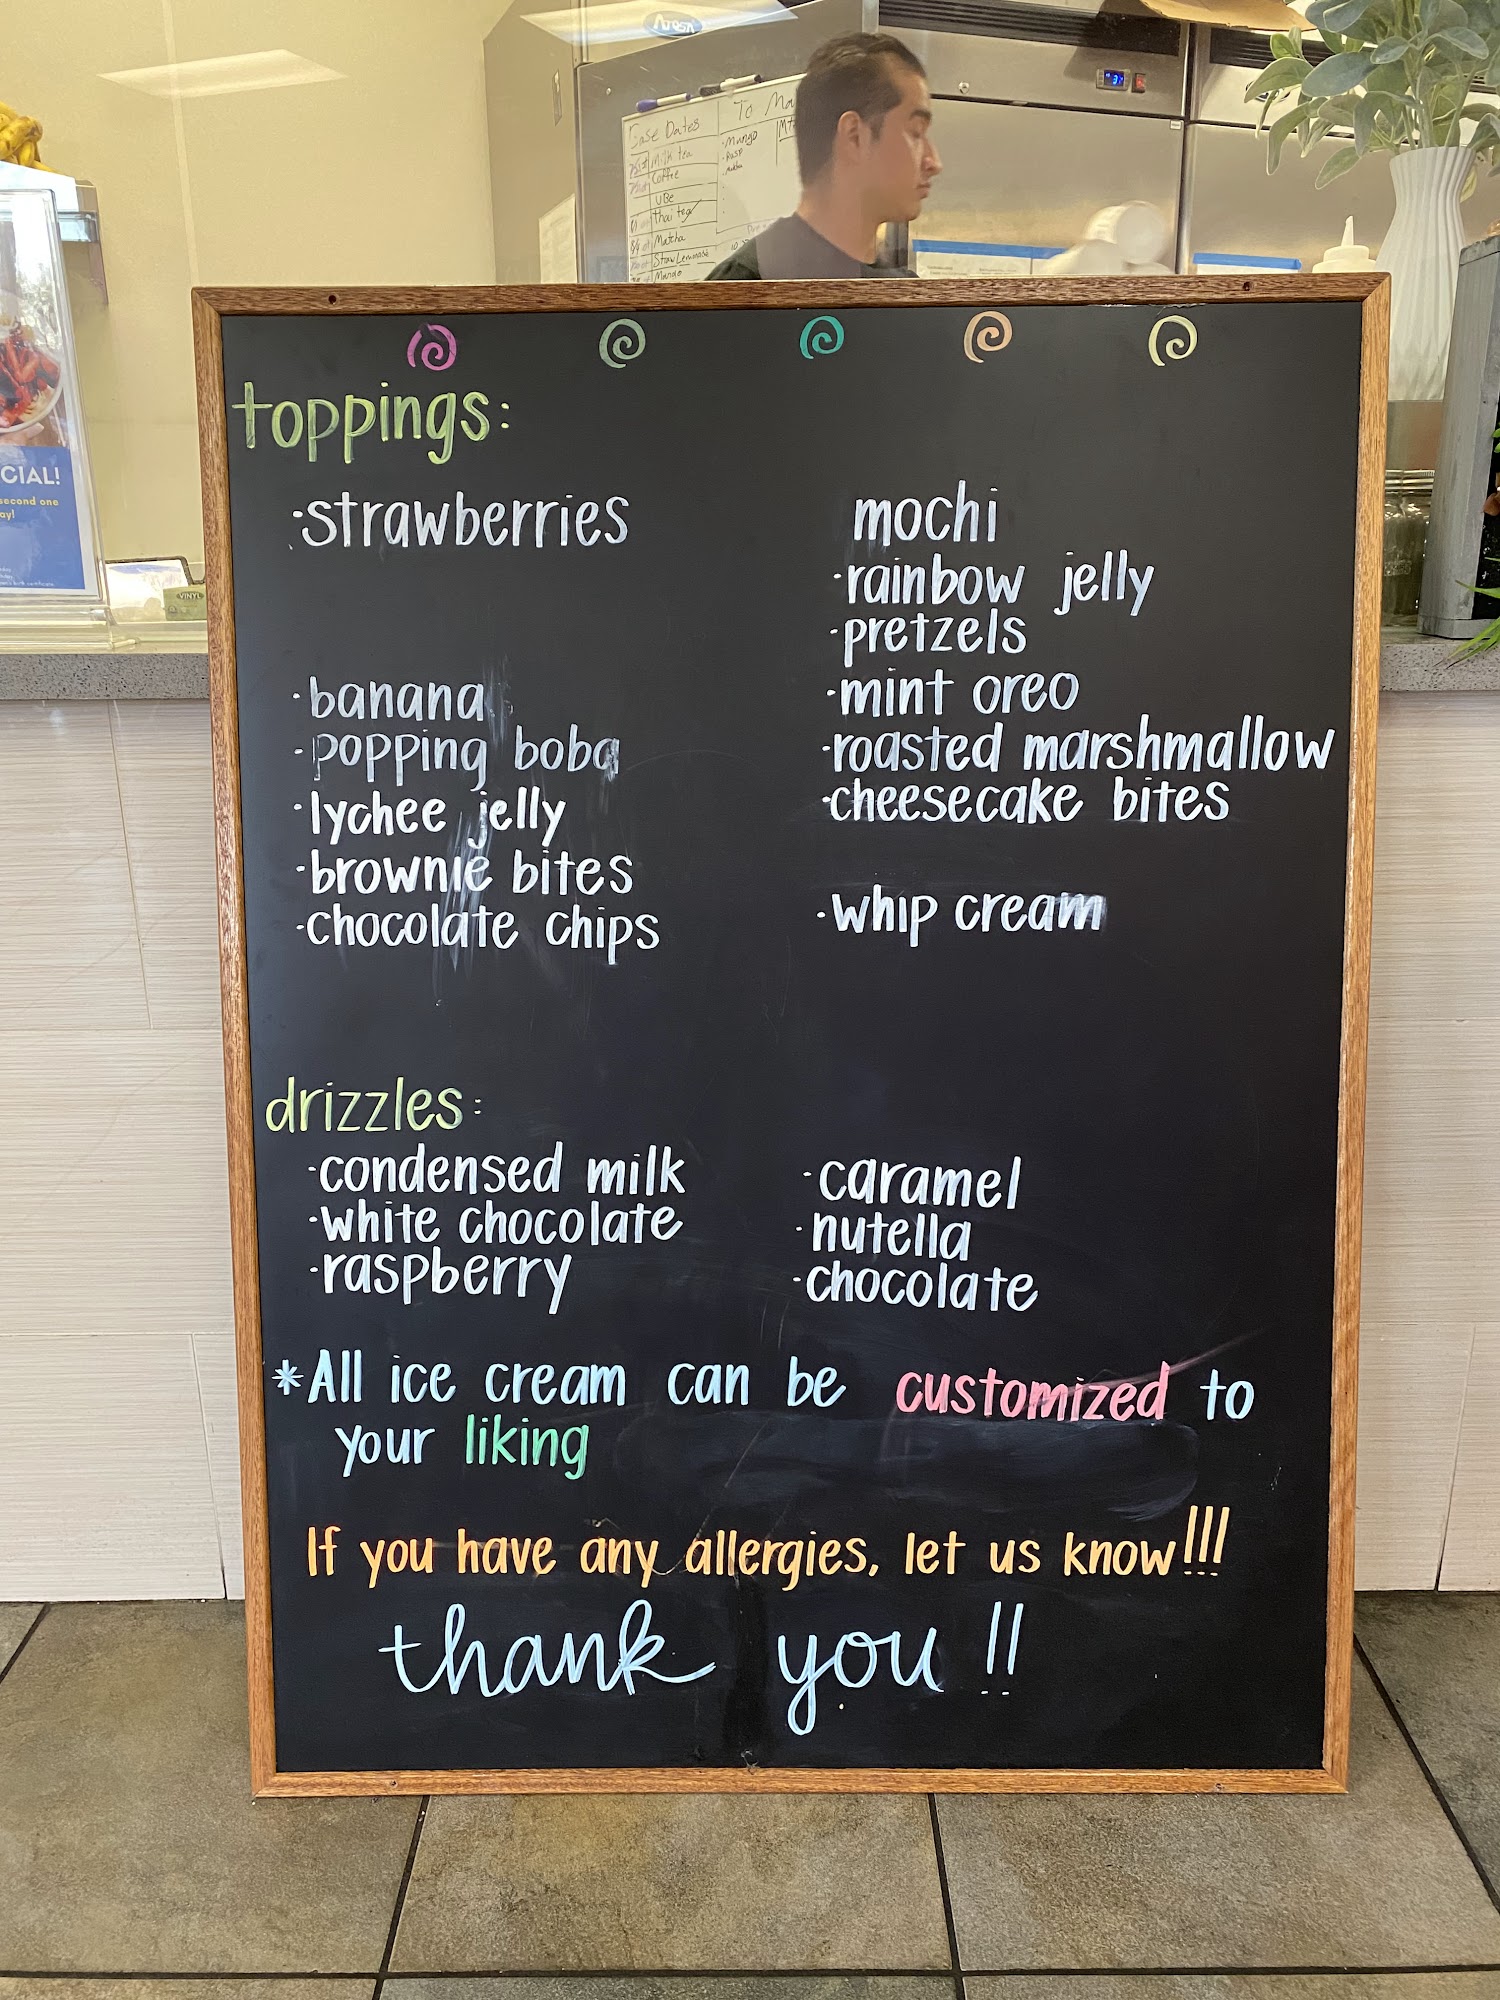 Arosa
To Ma
Case Dates
Milk tea
Coffee
UBe
thai tea
Matcha
Straw Lemonade
Mango
·Mango
CIAL!
second one
ay!
VINYL
toppings:
·strawberries
·banana
·popping boba
·lychee jelly
·brownie bites
·chocolate chips
mochi
·rainbow jelly
·pretzels
·mint oreo
·roasted marshmallow
·cheesecake bites
·whip cream
drizzles:
·condensed milk
·white chocolate
·raspberry
·caramel
·nutella
·chocolate
*All ice cream can be customized to
your liking
If you have any allergies, let us know!!!
thank you!!